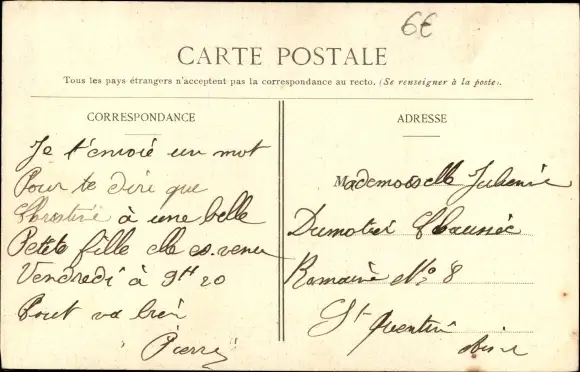 6€
CARTE POSTALE
Tous les pays étrangers n'acceptent pas la correspondance au recto. (Se renseigner à la poste).
CORRESPONDANCE
Je t'envoie un mot
Pour te dire que
Christine à une belle
Petite fille elle es venu
Vendredi à 9H 20
Tout va bien
Pierre
ADRESSE
Mademoiselle Julienne
Dumotier Chaussée
Romaine No 8
St Quentin
Aisne